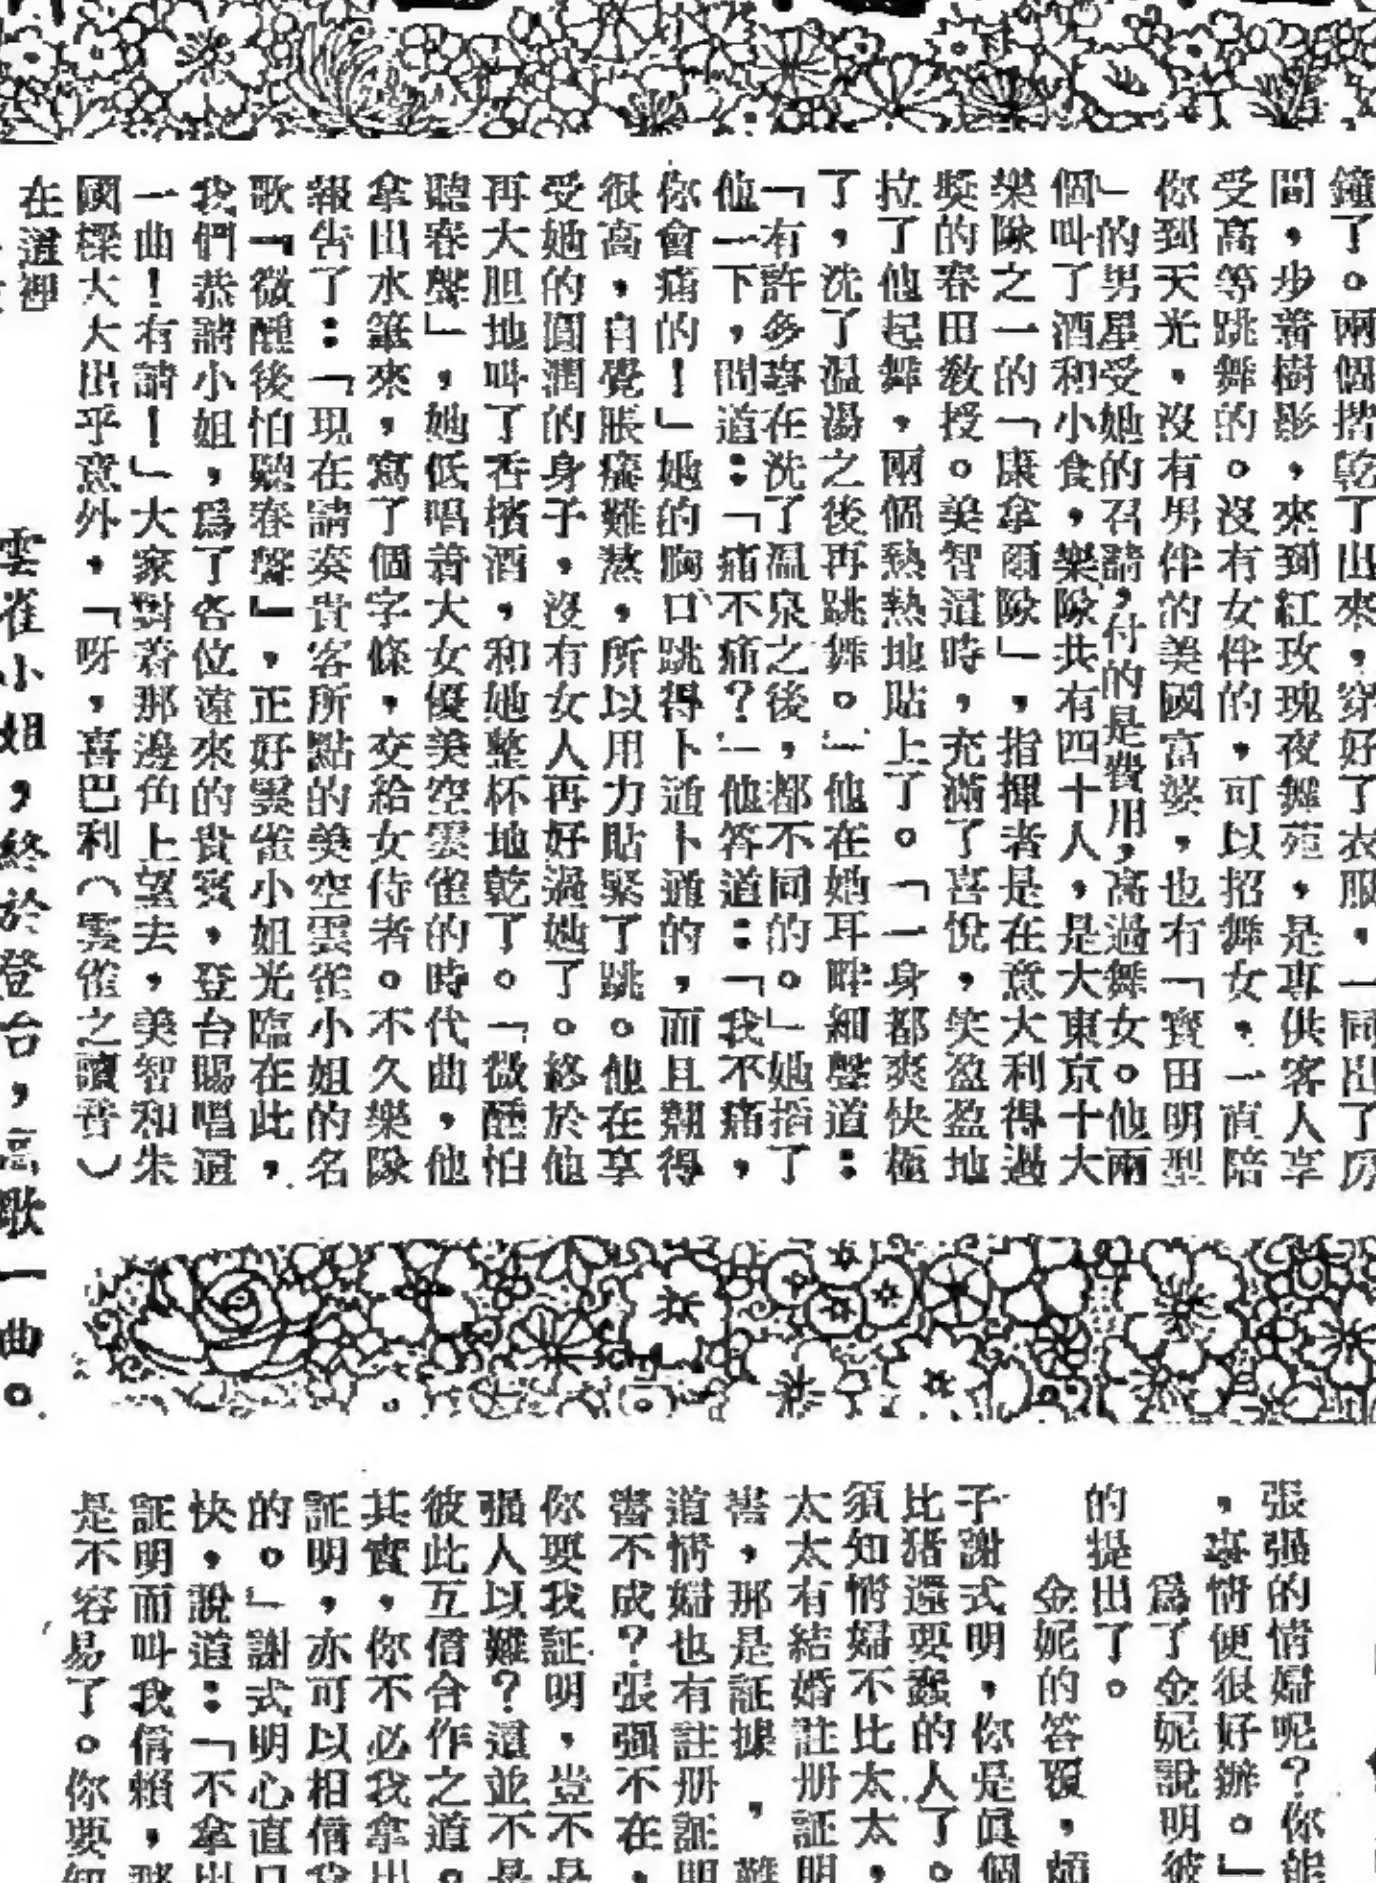 鐘了。兩個揩乾了出來，穿好了衣服，一同出了房
間，步着樹影，來到紅玫瑰夜舞苑，是專供客人享
受高等跳舞的。沒有女伴的，可以招舞女，一直陪
你到天光，沒有男伴的美國富婆，也有「寳田明型
」的男星受她的召請，付的是費用，高過舞女。他兩
個叫了酒和小食，樂隊共有四十人，是大東京十大
樂隊之一的「康拿爾隊」，指揮者是在意大利得過
奬的春田敎授。美智這時，充滿了喜悅，笑盈盈地
拉了他起舞，兩個熱熱地貼上了。「一身都爽快極
了，洗了温湯之後再跳舞。」他在她耳畔細聲道：
「有許多專在洗了温泉之後，都不同的。」她掐了
他一下，問道：「痛不痛？」他答道：「我不痛，
你會痛的！」她的胸口跳得卜通卜通的，而且翹得
很高，自覺脹癢難熬，所以用力貼緊了跳。他在享
受她的圓潤的身子，沒有女人再好過她了。終於他
再大胆地叫了香檳酒，和她整杯地乾了。「微醺怕
聽春聲」，她低唱着大女優美空雲雀的時代曲，他
拿出水筆來，寫了個字條，交給女侍者。不久樂隊
報告了：「現在請奏貴客所點的美空雲雀小姐的名
歌『微醺後怕聽春聲』，正好雲雀小姐光臨在此，
我們恭請小姐，爲了各位遠來的貴賓，登台賜唱這
一曲！有請！」大家對着那邊角上望去，美智和朱
國樑大大出乎意外，「呀，喜巴利（雲雀之讀音）
在這裡
雲雀小姐，終於登台，高歌一曲。
張强的情婦呢？你能
，事情便很好辦。」
爲了金妮說明彼
的提出了。
金妮的答覆，頗
子謝式明，你是眞個
比猪還要蠢的人了。
須知情婦不比太太，
太太有結婚註册証明
書，那是証據，難
道情婦也有註册証明
書不成？張强不在，
你要我証明，豈不是
强人以難？這並不是
彼此互信合作之道。
其實，你不必我拿出
証明，亦可以相信我
的。」謝式明心直口
快，說道：「不拿出
証明而叫我信賴，那
是不容易了。你要知